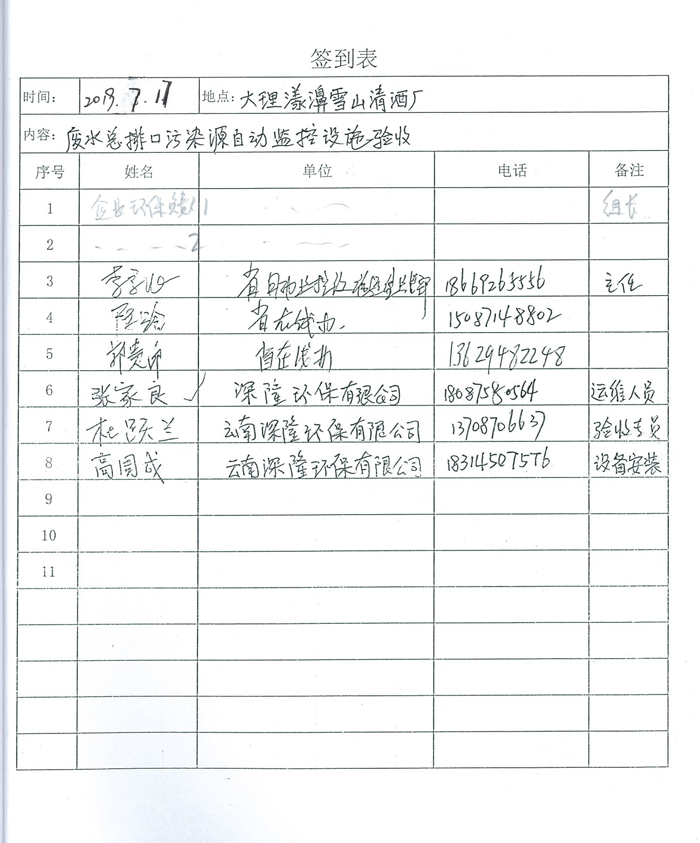 签到表
时间: 2019.7.17 地点: 大理漾濞雪山清酒厂
内容: 废水总排口污染源自动监控设施验收
序号 姓名 单位 电话 备注
1 企业环保 1 组长
2 2
3 省自动监控 18669265556 主任
4 省在线办. 15087148802
5 省在线办 13629482248
6 张家良 ✓ 深隆环保有限公司 18087580564 运维人员
7 杜跃兰 云南深隆环保有限公司 13708706637 验收专员
8 高国成 云南深隆环保有限公司 18314507576 设备安装
9
10
11